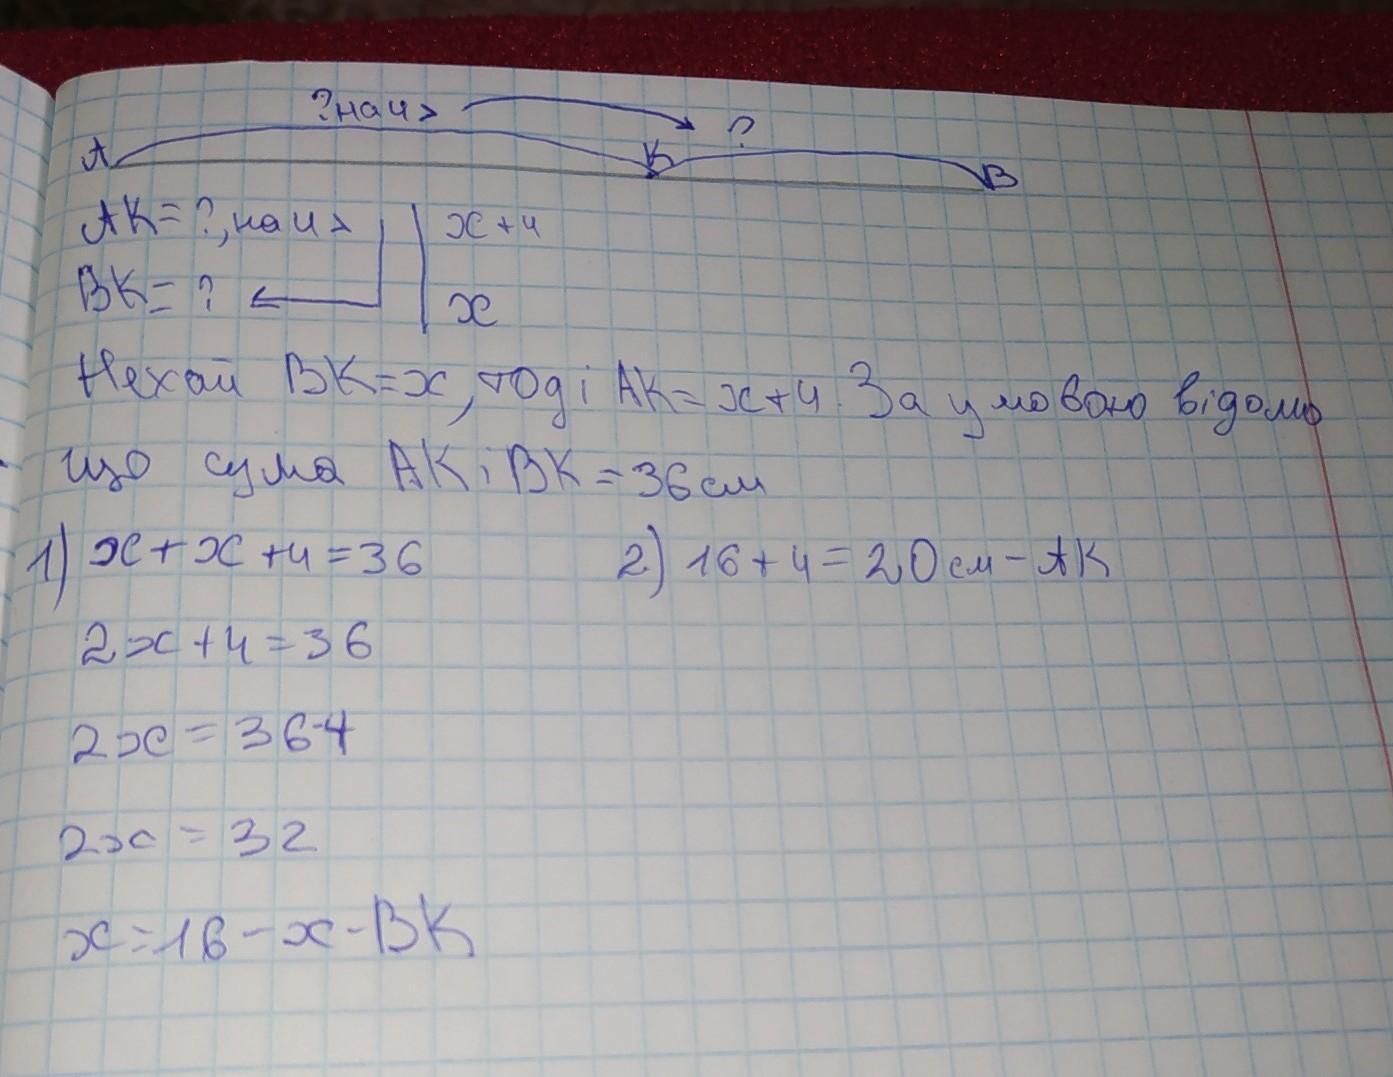 ? на 4 > ?
А К В
АК = ?, на 4 > | x + 4
ВК = ? | x
Нехай ВК = x, тоді АК = x + 4. За умовою відомо
що сума АК і ВК = 36 см
1) x + x + 4 = 36 2) 16 + 4 = 20 см - АК
2x + 4 = 36
2x = 36-4
2x = 32
x = 16 - x - ВК